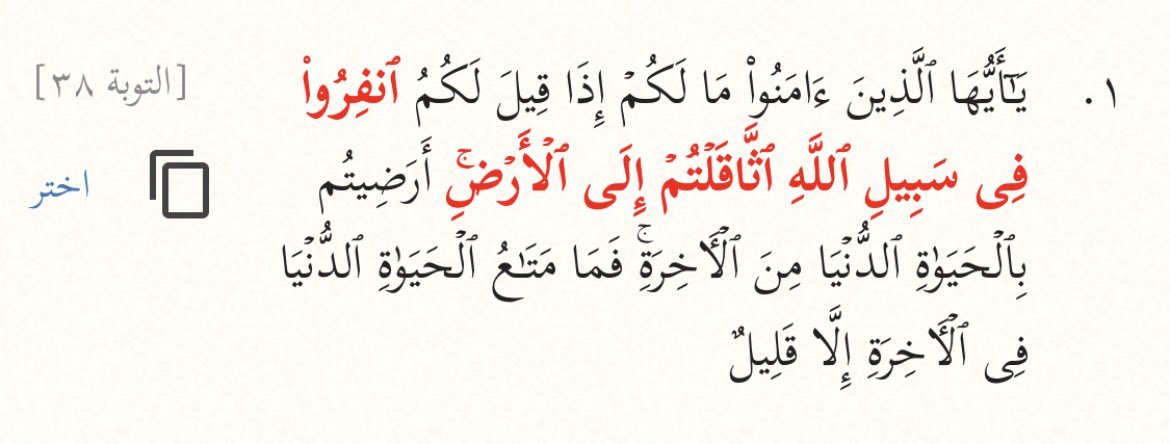 ١. يَـٰٓأَيُّهَا ٱلَّذِينَ ءَامَنُوا۟ مَا لَكُمْ إِذَا قِيلَ لَكُمُ ٱنفِرُوا۟ [التوبة ٣٨]
فِى سَبِيلِ ٱللَّهِ ٱثَّاقَلْتُمْ إِلَى ٱلْأَرْضِۚ أَرَضِيتُم اختر
بِٱلْحَيَوٰةِ ٱلدُّنْيَا مِنَ ٱلْـَٔاخِرَةِۚ فَمَا مَتَـٰعُ ٱلْحَيَوٰةِ ٱلدُّنْيَا
فِى ٱلْـَٔاخِرَةِ إِلَّا قَلِيلٌ